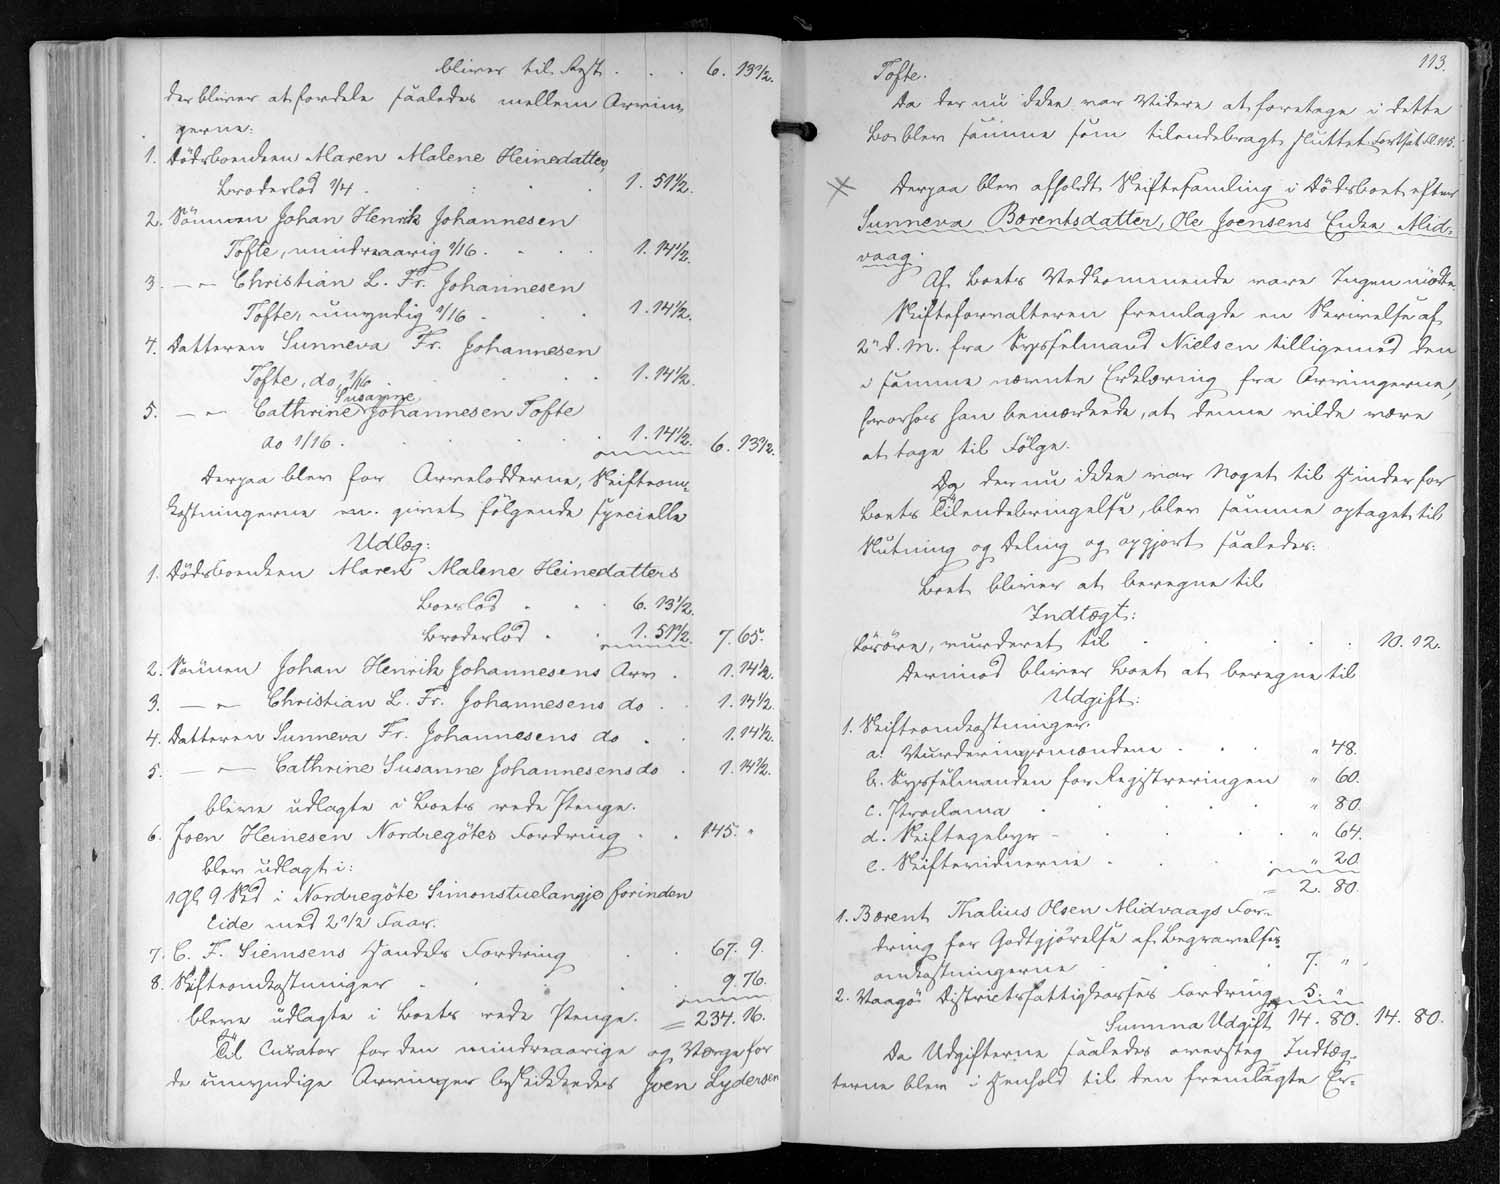 bliver til Rest . . . 6. 13 1/2.
der bliver at fordele saaledes mellem Arvin-
gerne:
1. Dödsboenken Maren Malene Heinedatter,
Broderlod 1/4 . . . . 1. 51 1/2.
2. Sönnen Johan Henrik Johannesen
Tofte, mindreaarig 1/16 . . . 1. 14 1/2.
3. — " — Christian L. Fr. Johannesen
Tofte, umyndig 1/16 . . . 1. 14 1/2.
4. Datteren Sunneva Fr. Johannesen
Tofte, do. 1/16 . . . . 1. 14 1/2.
5. — " — Cathrine Susanne Johannesen Tofte
do 1/16 . . . . . 1. 14 1/2. 6. 13 1/2.
Derpaa blev for Arvelodderne, Skifteom-
kostningerne m. givet fölgende specielle
Udlæg:
1. Dödsboenken Maren Malene Heinedatters
Boeslod . . . 6. 13 1/2.
Broderlod . . 1. 51 1/2. 7. 65.
2. Sönnen Johan Henrik Johannesens Arv . 1. 14 1/2.
3. — " — Christian L. Fr. Johannesens do . . 1. 14 1/2.
4. Datteren Sunneva Fr. Johannesens do . . 1. 14 1/2.
5. — " — Cathrine Susanne Johannesens do . 1. 14 1/2.
bleve udlagte i Boets rede Penge.
6. Joen Heinesen Nordregötes Fordring . . 145. "
blev udlagt i:
1 Gl 9 Skd i Nordregöte Simonstuelangje forinden
Eide med 2 1/2 Faar.
7. C. F. Siemsens Handels Fordring . . 67. 9.
8. Skifteomkostninger . . . . 9. 76.
bleve udlagte i Boets rede Penge. = 234. 16.
Til Curator for den mindreaarige og Værge for
de umyndige Arvinger beskikkedes Joen Lydersen
113.
Tofte.
Da der nu ikke var Videre at foretage i dette
Bo blev samme som tilendebragt sluttet. Fortsat Fl. 115.
Derpaa blev afholdt Skiftesamling i Dödsboet efter
Sunneva Bærentsdatter, Ole Joensens Enke Mid-
vaag.
Af Boets Vedkommende vare Ingen mödte.
Skifteforvalteren fremlagde en Skrivelse af
2n d. M. fra Sysselmand Nielsen tilligemed den
i samme nævnte Erklæring fra Arvingerne,
hvorhos han bemærkede, at denne vilde være
at tage til Fölge.
Da der nu ikke var Noget til Hinder for
Boets Tilendebringelse, blev samme optaget til
Slutning og Deling og opgjort saaledes:
Boet bliver at beregne til
Indtægt:
Lösöre, vurderet til . . . . . 10. 12.
Derimod bliver Boet at beregne til
Udgift:
1. Skifteomkostninger.
a. Vurderingsmændene . . . " 48.
b. Sysselmanden for Registreringen " 60.
c. Proclama . . . . . " 80.
d. Skiftegebyr - . . . . " 64.
e. Skiftevidnerne . . . . " 20
= 2. 80.
1. Bærent Thalius Olsen Midvaags For-
dring for Godtgjörelse af Begravelses-
omkostningerne . . . . 7. " .
2. Vaagö Districtsfattigkasses Fordring 5. "
Summa Udgift 14. 80. 14. 80.
Da Udgifterne saaledes oversteg Indtæg-
terne blev i Henhold til den fremlagte Er-